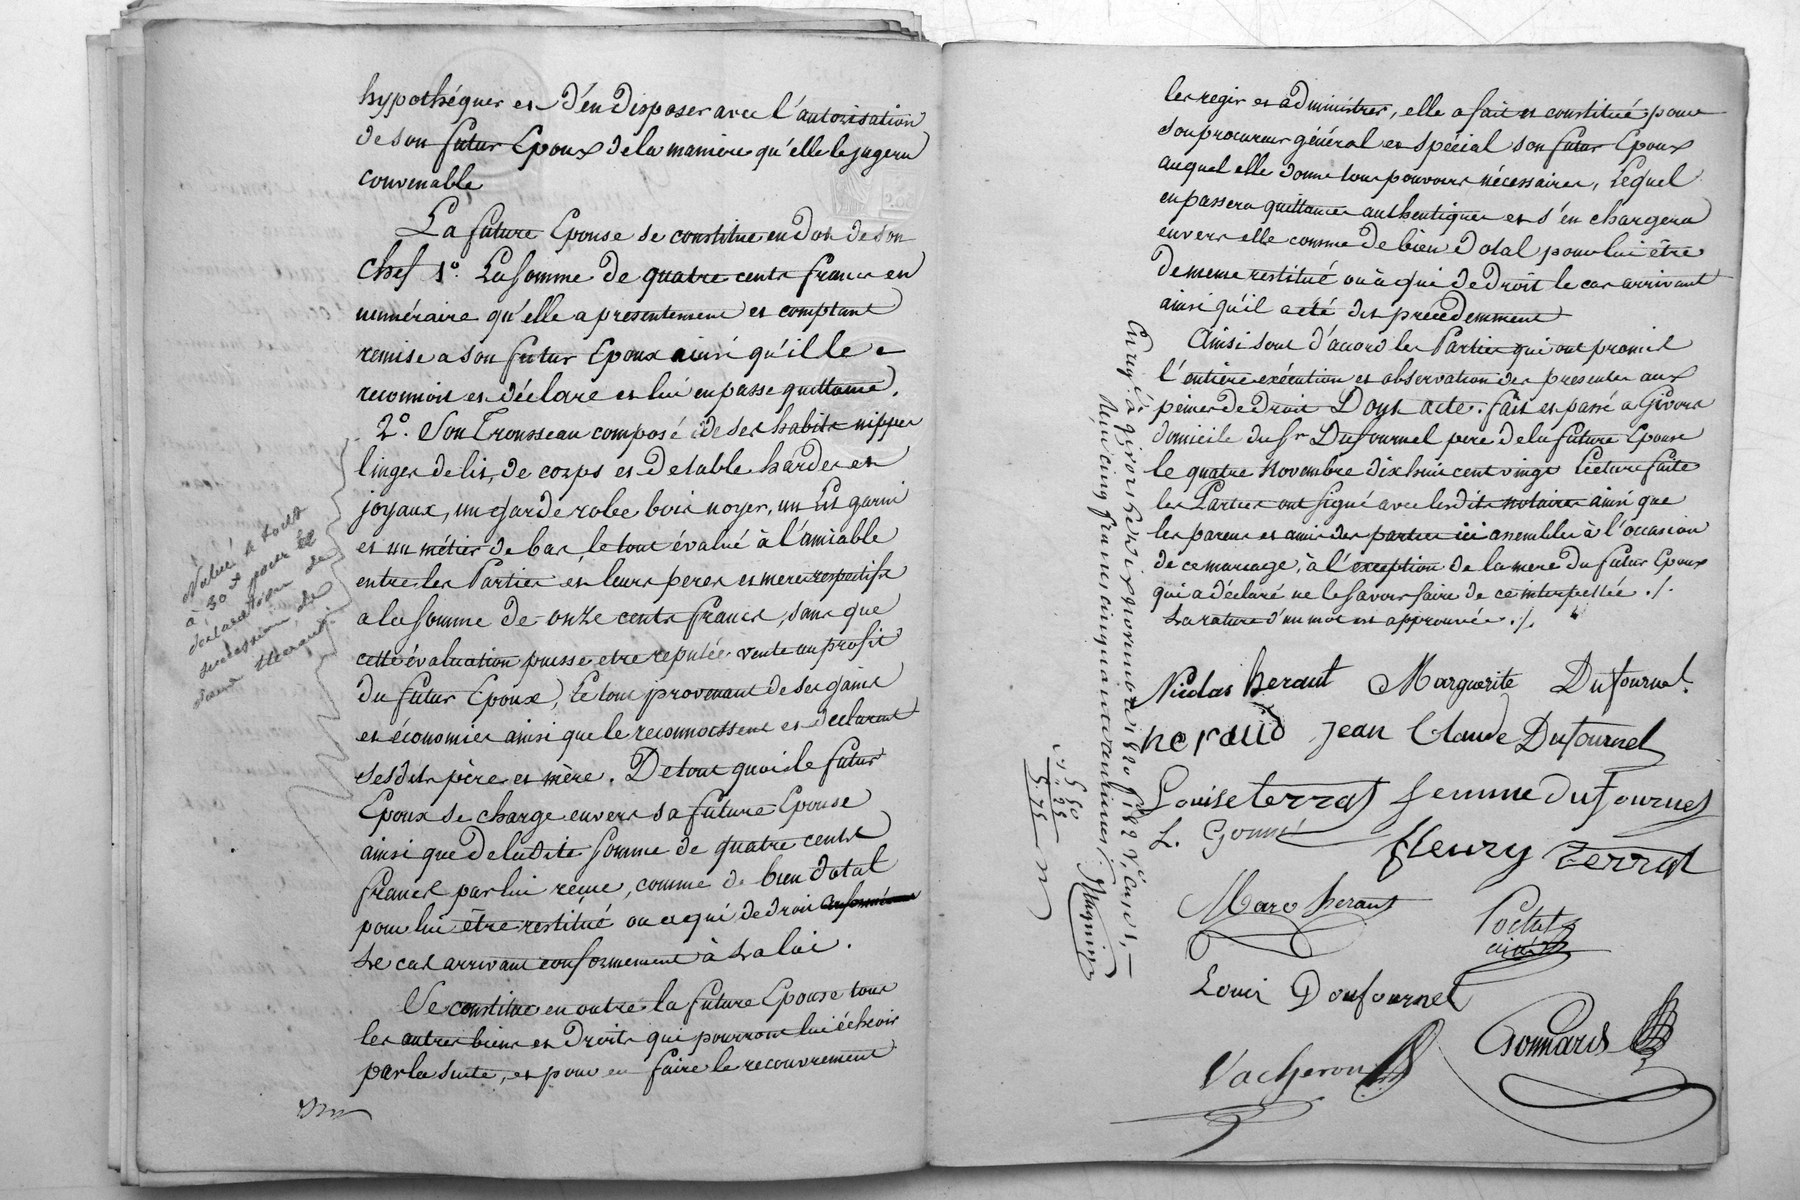 hypothéquer et d'en disposer avec l'autorisation
de son futur Epoux de la maniere qu'elle le jugera
convenable
La future Epouse se constitue en dot de son
chef 1º. La somme de quatre cents francs en
numéraire qu'elle a presentement et comptant
remise a son futur Epoux ainsi qu'il le
reconnoit et déclare et lui en passe quittance.
2º. Son Trousseau composé de ses habits nippes
linges de lit, de corps et de table hardes et
joyaux, un garderobe bois noyer, un Lit garni
et un métier de bas le tout évalué à l'amiable
entre les Parties et leurs peres et meres respectifs
a la somme de onze cents francs, sans que
cette évaluation puisse etre reputée vente au profit
du futur Epoux, Le tout provenant de ses gains
et économies ainsi que le reconnoissent et déclarent
sesdits père et mère. De tout quoi le futur
Epoux se charge envers sa future Epouse
ainsi que de ladite somme de quatre cents
francs par lui recue, comme de bien dotal
pour lui être restitué ou a qui de droit
Le cas arrivant conformement à La loi.
Se constitue en outre la future Epouse tous
les autres biens et Droits qui pourront lui échoir
par la suite, et pour en faire le recouvrement
à 30 f pour la
déclaration de
succession de
les regir et administrer, elle a fait et constitué pour
son procureur général et spécial son futur Epoux
auquel elle donne tous pouvoirs nécessaires, Lequel
en passera quittances authentiques et s'en chargera
envers elle comme de bien dotal pour lui être
de meme restitué ou à qui de Droit le cas arrivant
ainsi qu'il a été dit precedemment
Ainsi sont d'accord les Parties qui ont promis
l'entière exécution et observation des presentes aux
peines de droit Dont acte. fait et passé a Givors
domicile du Sr Dufournel pere de la future Epouse
le quatre Novembre dix huit cent vingt Lecture faite
les Parties ont signé avec lesdits notaires ainsi que
les parens et amis des parties ici assemblés à l'occasion
de ce mariage, à l'exception de la mere du futur Epoux
qui a déclaré ne le savoir faire de ce interpellée ./.
La rature d'un mot est approuvée ./.
Nicolas heraut Marguerite Dufournel
heraud jean Claude Dufournel
Louise terrat femme dufournel
L. Gonin
fleury terrat
Marc heraut
Louis Doufournel
Vacheron
Enreg. à givors le dix novembre 1820 fº 182 Vº
Reçu cinq francs cinquante centimes
5 50
55